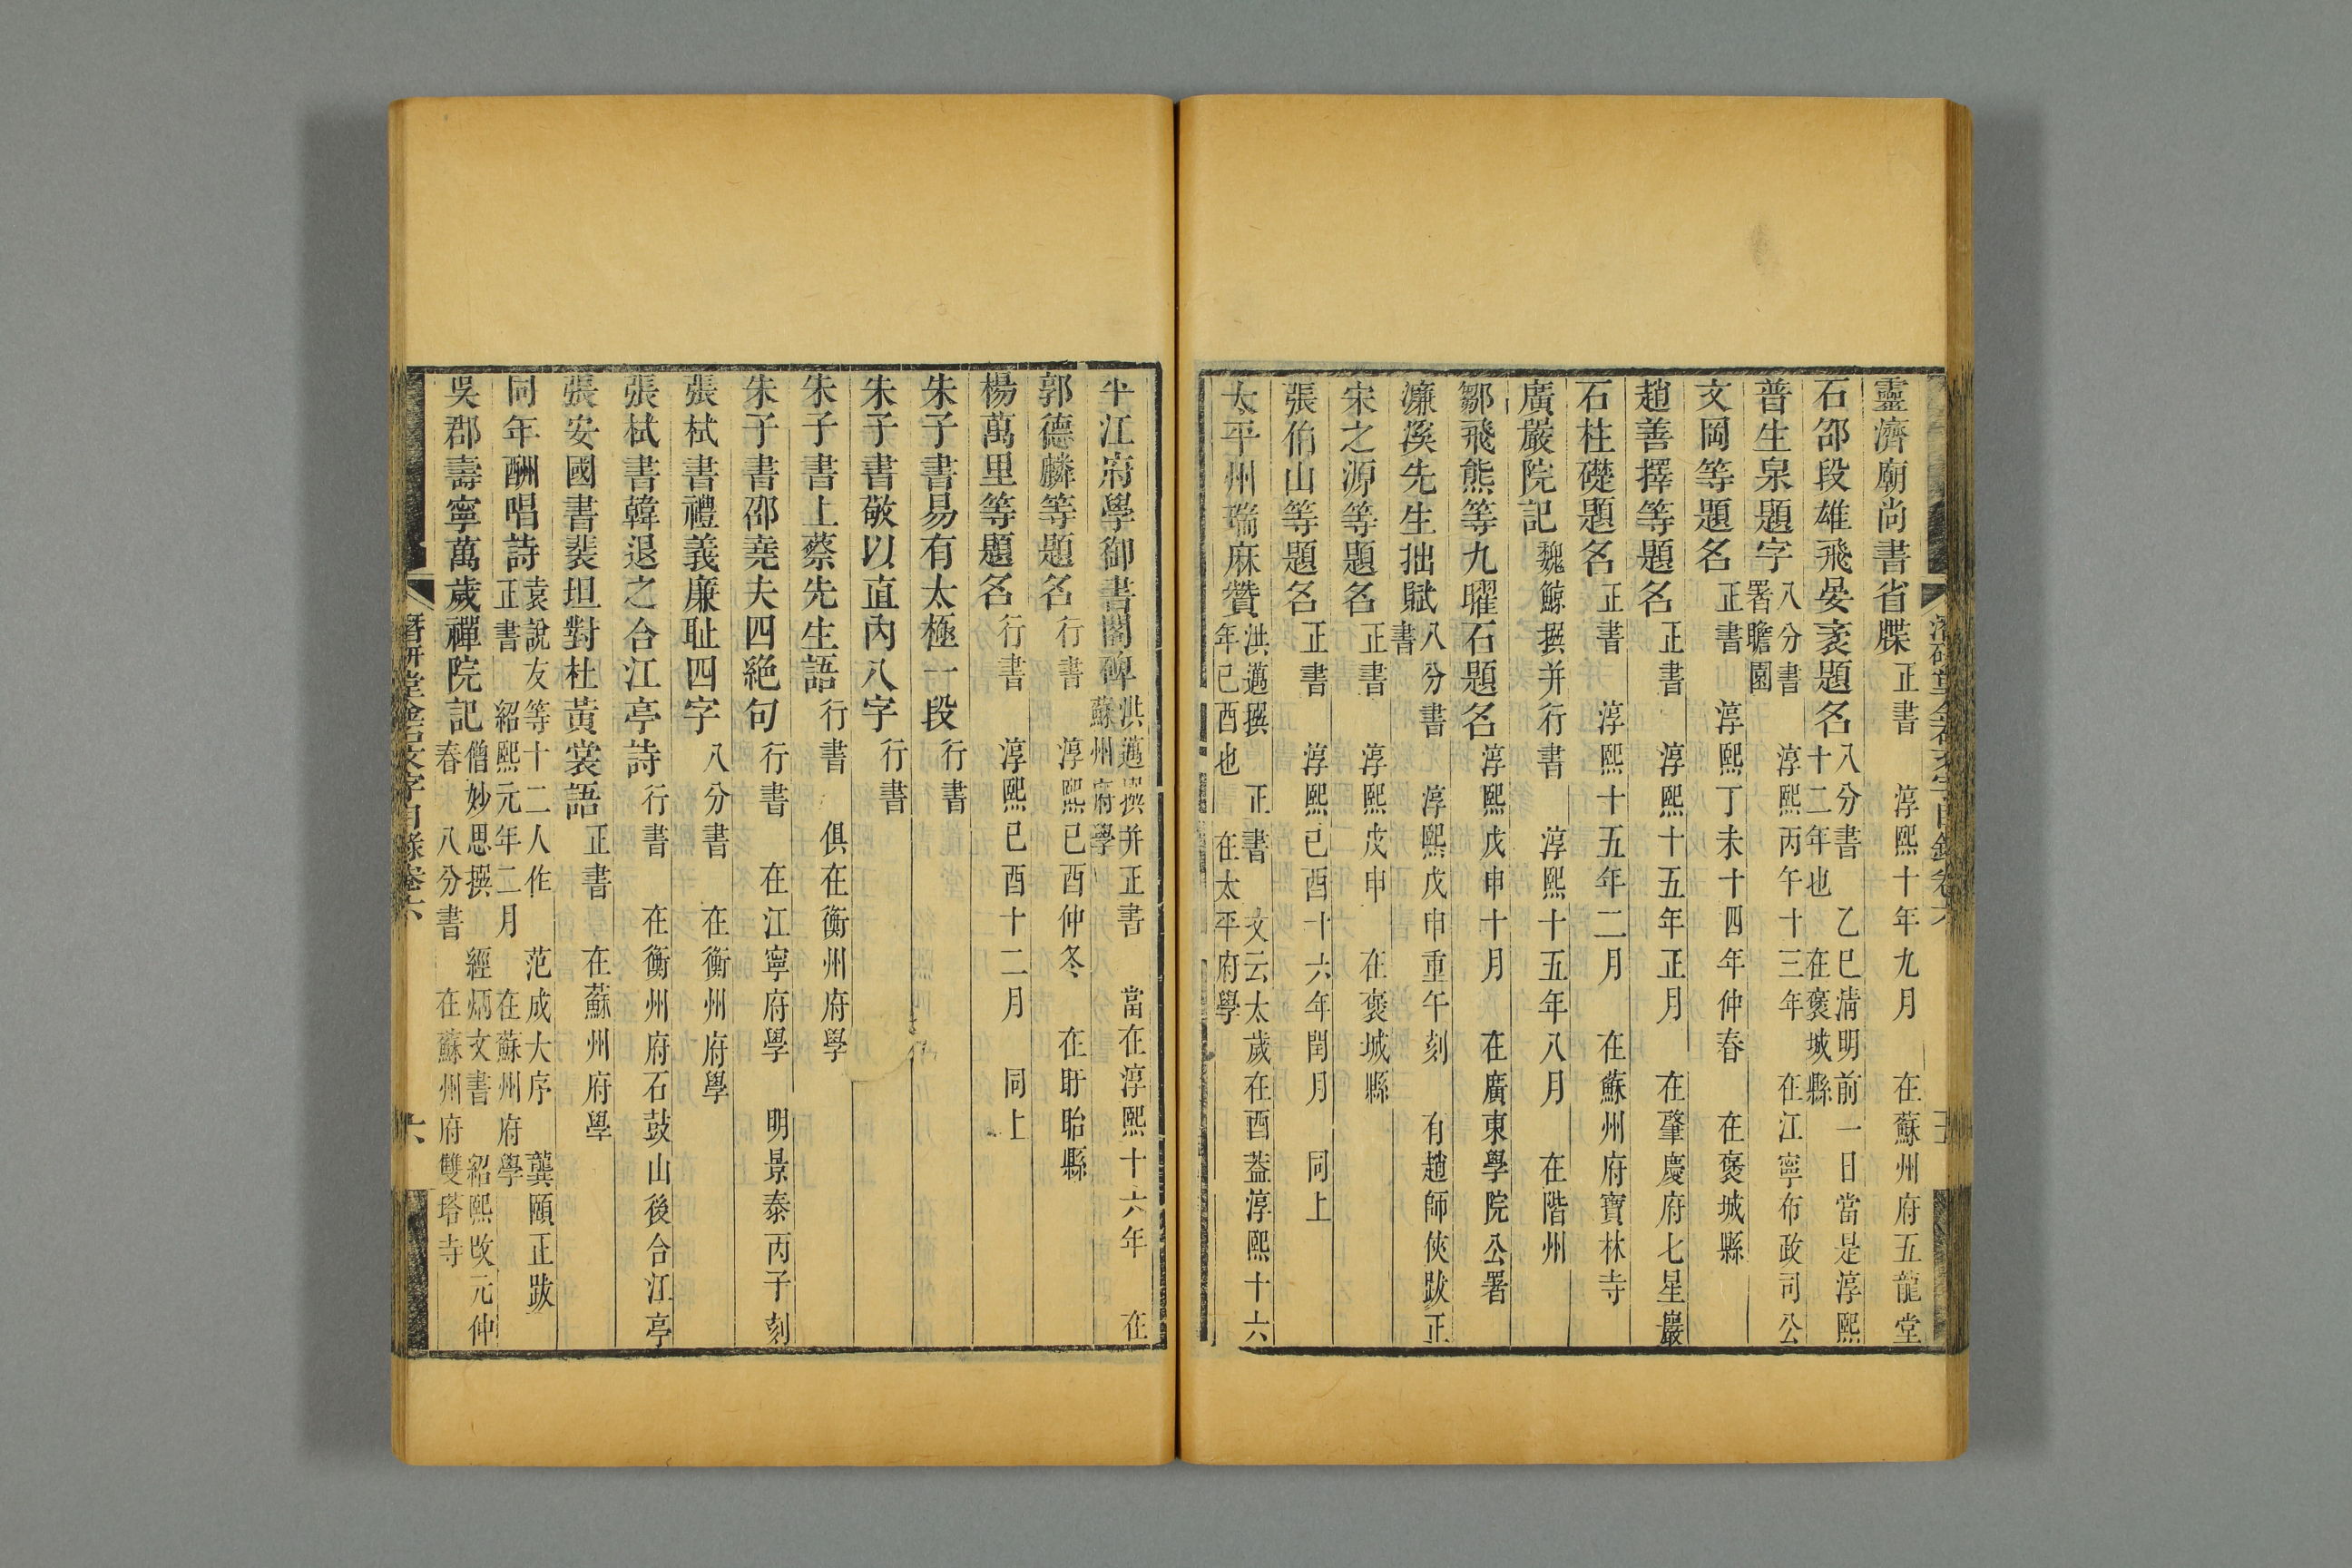 靈濟廟尚書省牒 正書 淳熙十年九月 在蘇州府五龍堂
石邵段雄飛晏袤題名 八分書 乙巳清明前一日當是淳熙十二年也 在褒城縣
普生泉題字 八分書 淳熙丙午十三年 在江寧布政司公署瞻園
文岡等題名 正書 淳熙丁未十四年仲春 在褒城縣
趙善擇等題名 正書 淳熙十五年正月 在肇慶府七星巖
石柱礎題名 正書 淳熙十五年二月 在蘇州府寶林寺
廣嚴院記 魏鯨撰并行書 淳熙十五年八月 在階州
鄒飛熊等九曜石題名 淳熙戊申十月 在廣東學院公署
濂溪先生拙賦 八分書 淳熙戊申重午刻 有趙師俠跋正書
宋之源等題名 正書 淳熙戊申 在褒城縣
張伯山等題名 正書 淳熙己酉十六年閏月 同上
太平州瑞麻贊 洪邁撰 正書 文云太歲在酉葢淳熙十六年己酉也 在太平府學
平江府學御書閣碑 洪邁撰并正書 當在淳熙十六年 在蘇州府學
郭德麟等題名 行書 淳熙己酉仲冬 在盱眙縣
楊萬里等題名 行書 淳熙己酉十二月 同上
朱子書易有太極一段 行書
朱子書敬以直內八字 行書
朱子書上蔡先生語 行書 俱在衡州府學
朱子書邵堯夫四絕句 行書 在江寧府學 明景泰丙子刻
張栻書禮義廉耻四字 八分書 在衡州府學
張栻書韓退之合江亭詩 行書 在衡州府石鼓山後合江亭
張安國書裴坦對杜黃裳語 正書 在蘇州府學
同年酬唱詩 袁說友等十二人作 范成大序 龔頤正跋 正書 紹熙元年二月 在蘇州府學
吳郡壽寧萬歲禪院記 僧妙思撰 經炳文書 紹熙改元仲春 八分書 在蘇州府雙塔寺
潛研堂金石文字目錄卷六
六